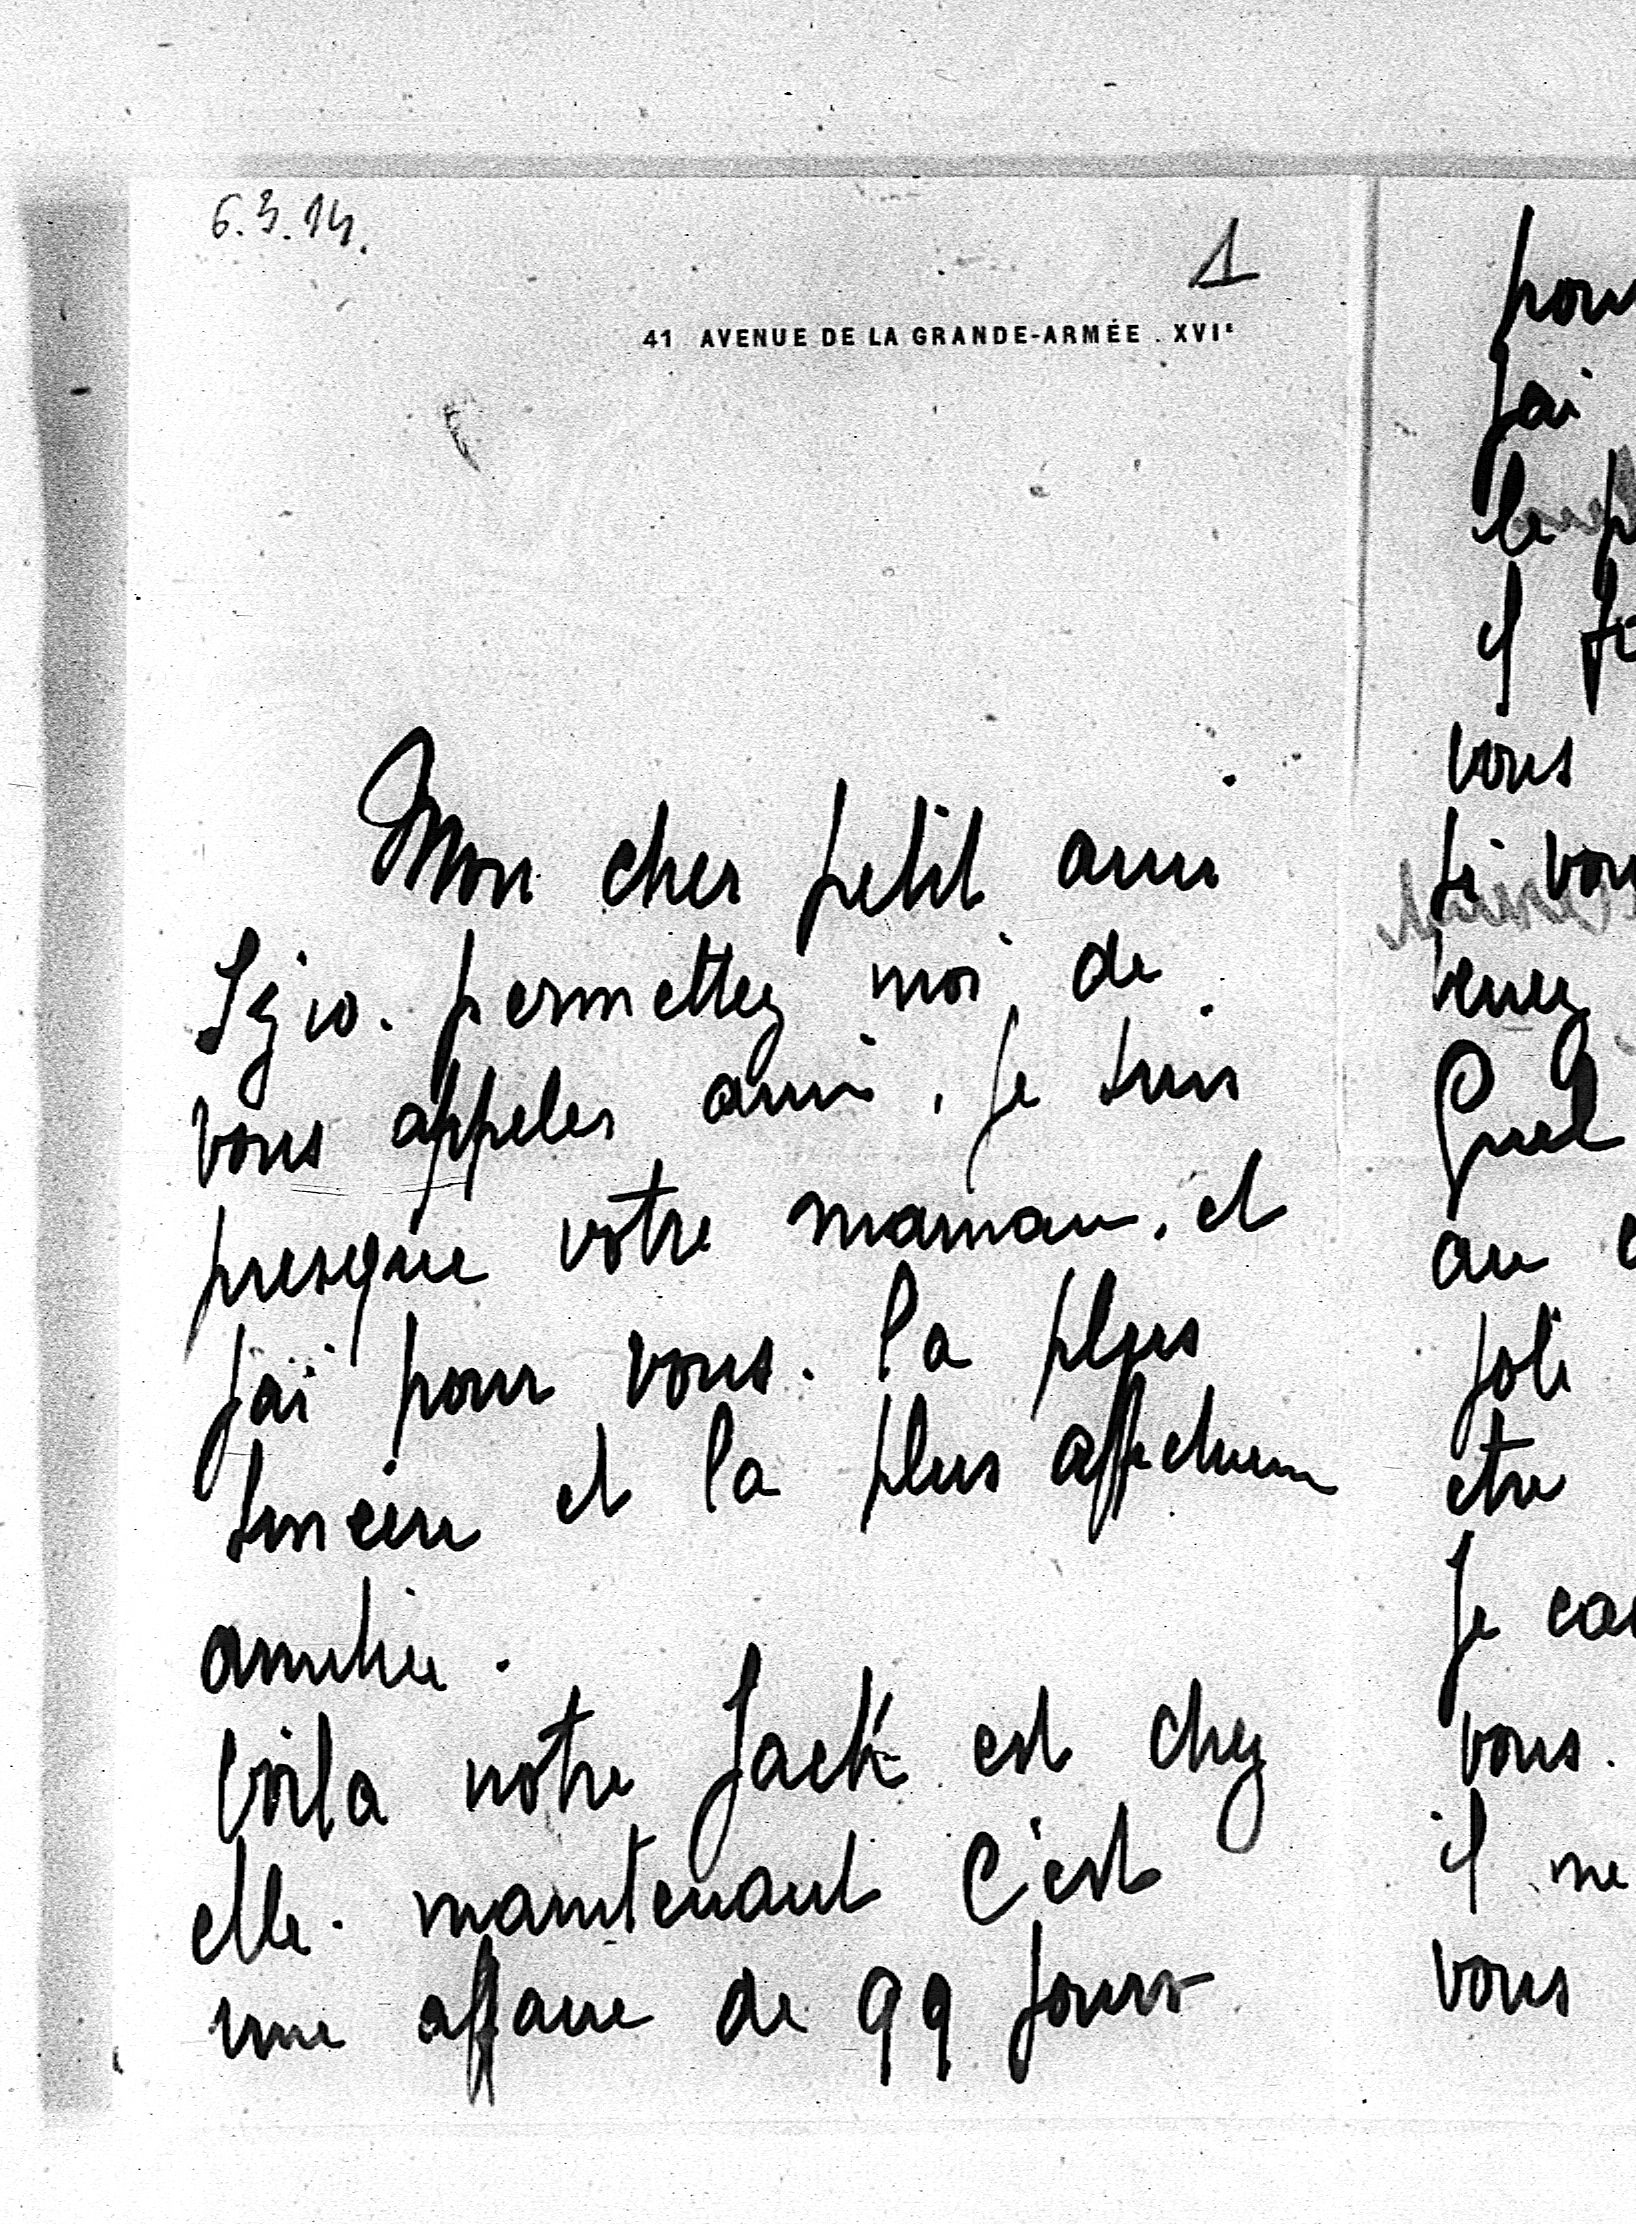 6.3.14.
1
41 AVENUE DE LA GRANDE-ARMÉE . XVIe
Mon cher petit ami
permettez moi de
vous appeler ami. Je suis
presque votre maman. et
j'ai pour vous. la plus
sincère et la plus
amitié.
Voila notre Jack est chez
elle. maintenant C'est
une affaire de 99 jours
pour
j'ai
le
il
vous
si vou
venez
Quel
au
joli
etre
Je
vous.
il ne
vous